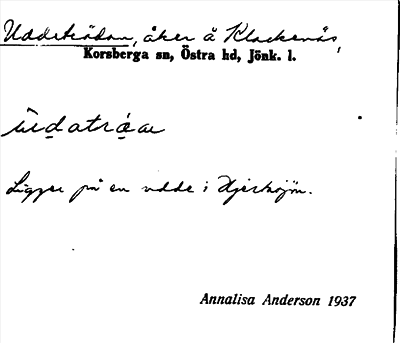 Uddeträdan, åker å Klackenås,
Korsberga sn, Östra hd, Jönk. l.
ùḍatrá̤ɑ
Ligger på en udde i Hjertsjön.
Annalisa Anderson 1937